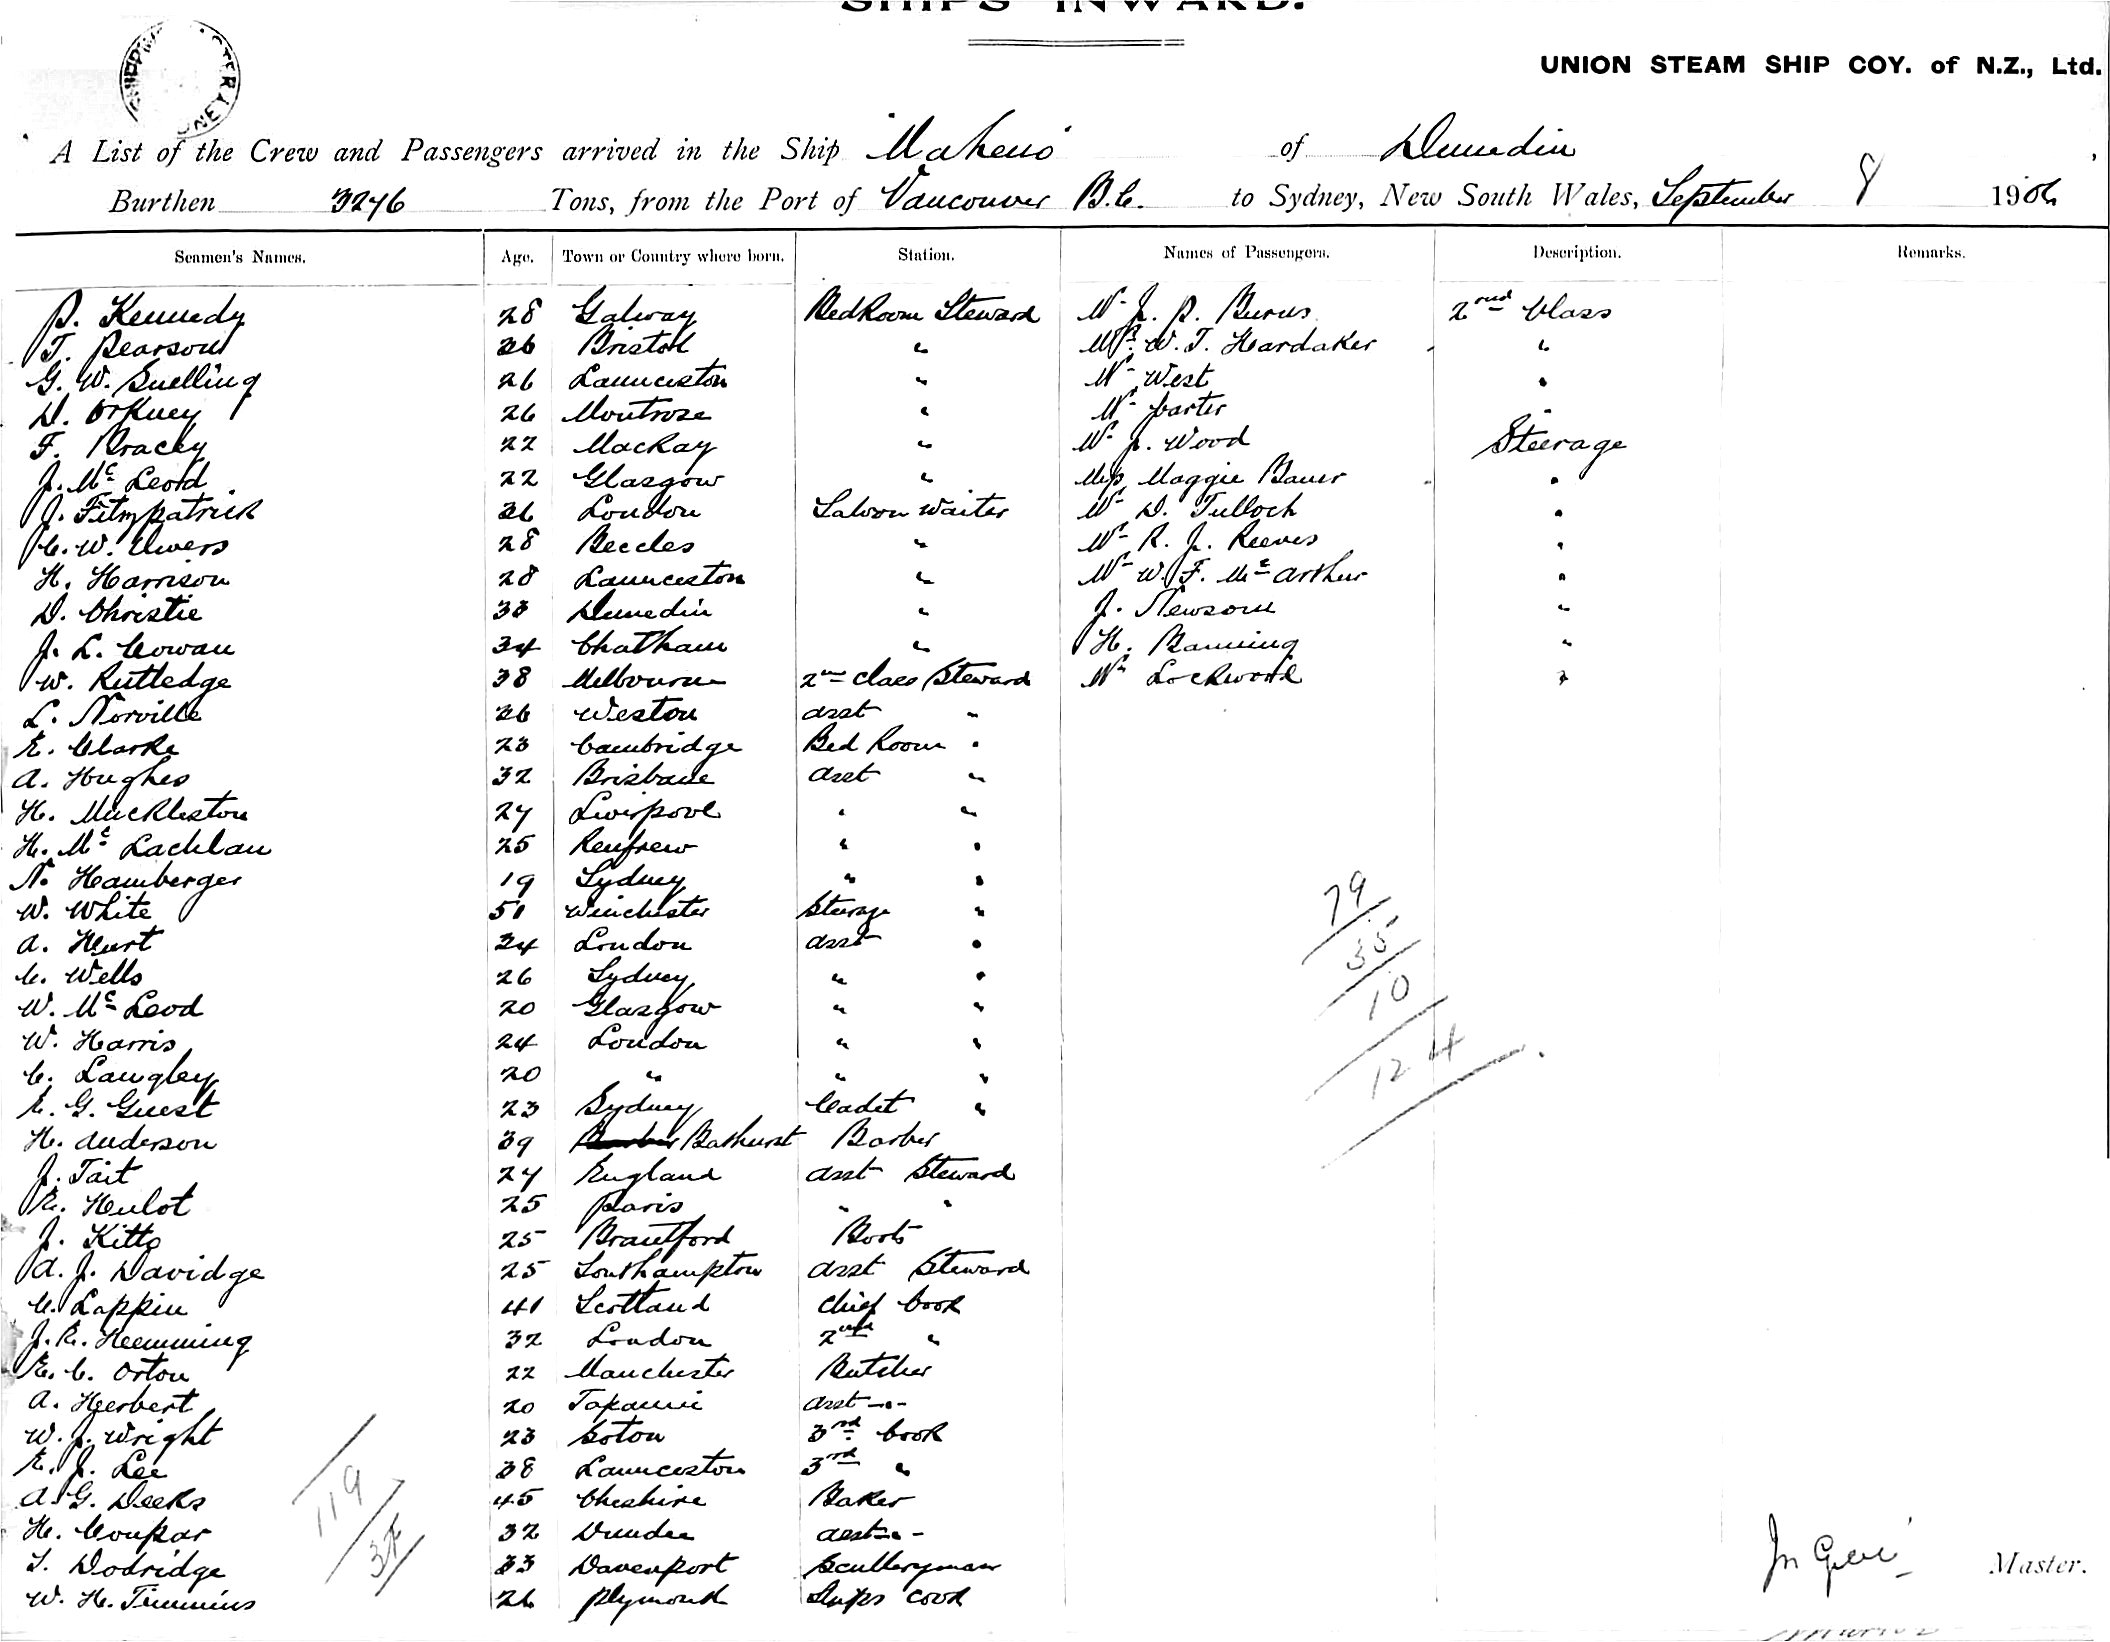 SHIPS INWARD.
UNION STEAM SHIP COY. of N.Z., Ltd.
A List of the Crew and Passengers arrived in the Ship "Maheno" of Dunedin
Burthen 3246 Tons, from the Port of Vancouver B.C. to Sydney, New South Wales, September 8 1906
Seamen's Names. Age. Town or Country where born. Station. Names of Passengers. Description. Remarks.
P. Kennedy 28 Galway BedRoom Steward Mr J. P. Burns 2nd Class
T. Pearson 26 Bristol " Mrs. W. T. Hardaker "
G. W. Snelling 26 Launceston " Mr West "
D. Orkney 26 Montrose " Mr Carter "
F. Bracey 22 MacKay " Mr J. Wood Steerage
J. Mc Leod 22 Glasgow " Miss Maggie Bauer "
J. Fitzpatrick 36 London Saloon Waiter Mr D. Tulloch "
C. W. Ulvers 28 Beccles " Mr R. J. Reeves "
H. Harrison 28 Launceston " Mr W. F. Mc Arthur "
D. Christie 33 Dunedin " J. Newsom "
J. L. Cowan 34 Chatham " H. Banning "
W. Rutledge 38 Melbourne 2nd Class Steward Mr Lockwood "
L. Norville 26 Weston Asst "
E. Clarke 23 Cambridge Bed Room "
A. Hughes 32 Brisbane Asst "
H. Muckleston 27 Liverpool " "
H. Mc Lachlan 25 Renfrew " "
N. Hamberger 19 Sydney " "
W. White 51 Winchester Steerage "
A. Hurt 24 London Asst "
C. Wells 26 Sydney " "
W. Mc Leod 20 Glasgow " "
W. Harris 24 London " "
C. Langley 20 " " "
E. G. Guest 23 Sydney Cadet "
H. Anderson 39 Bathurst Barber
J. Tait 27 England Asst Steward
E. Hulot 25 Paris " "
J. Kitto 25 Brantford Boots
A. J. Davidge 25 Southampton Asst Steward
C. Lappin 41 Scotland Chief Cook
J. E. Hemming 32 London 2nd "
E. C. Orton 22 Manchester Butcher
A. Herbert 20 Tapanui Asst -"-
W. J. Wright 23 Soton 3rd Cook
E. J. Lee 38 Launceston 3rd "
A. G. Deeks 45 Cheshire Baker
H. Coupar 32 Dundee Asst -"-
S. Dodridge 33 Davenport Sculleryman
W. H. Timmins 26 Plymouth Ships Cook
79
35
10
124
119
Master.